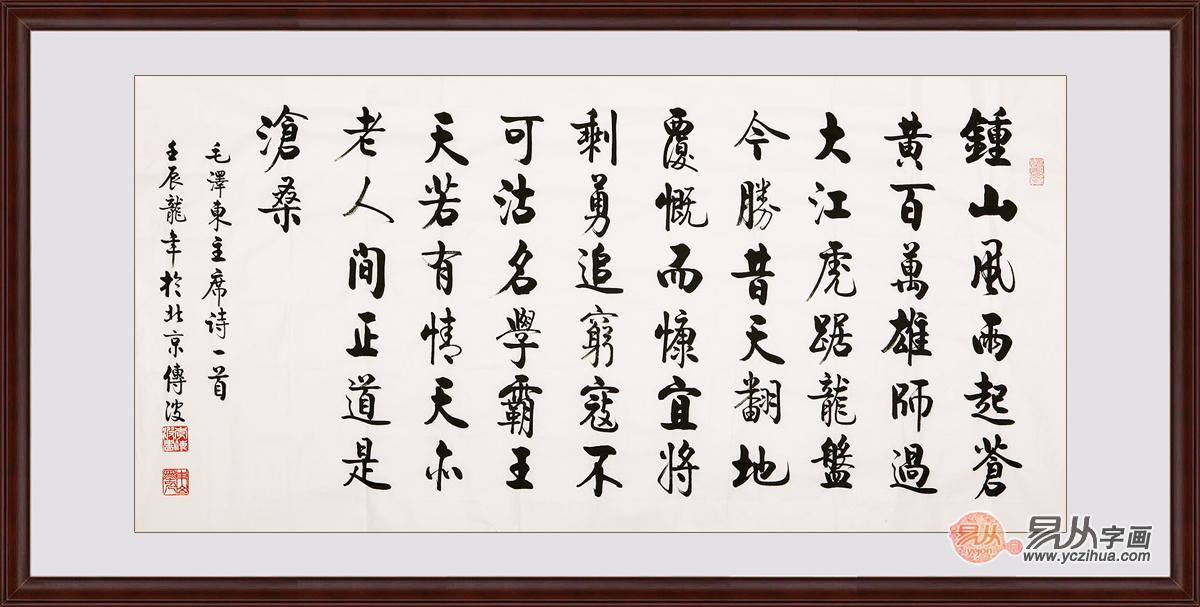 鍾山風雨起蒼
黃百萬雄師過
大江虎踞龍盤
今勝昔天翻地
覆慨而慷宜將
剩勇追窮寇不
可沽名學霸王
天若有情天亦
老人間正道是
滄桑
毛澤東主席诗一首
壬辰龍年於北京傳波
易从
yicon
易从字画
www.yczihua.com